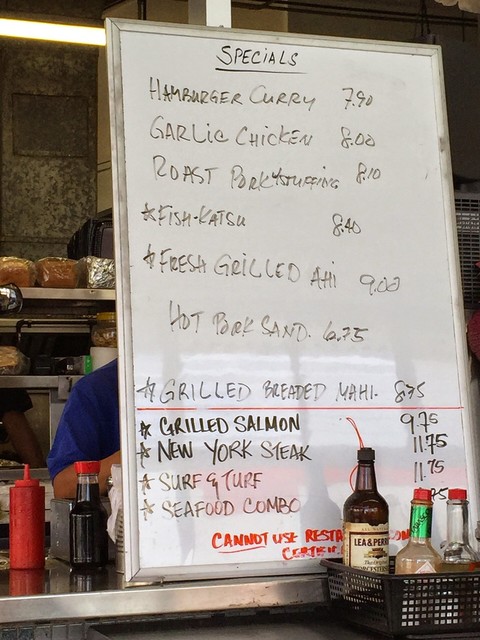 SPECIALS
HAMBURGER CURRY 7.90
GARLIC CHICKEN 8.00
ROAST PORK & STUFFING 8.10
* FISH-KATSU 8.40
* FRESH GRILLED AHI 9.00
HOT PORK SAND. 6.75
* GRILLED BREADED MAHI. 8.75
* GRILLED SALMON 9.75
* NEW YORK STEAK 11.75
* SURF & TURF 11.75
* SEAFOOD COMBO .75
CANNOT USE
LEA & PERRINS
The Original